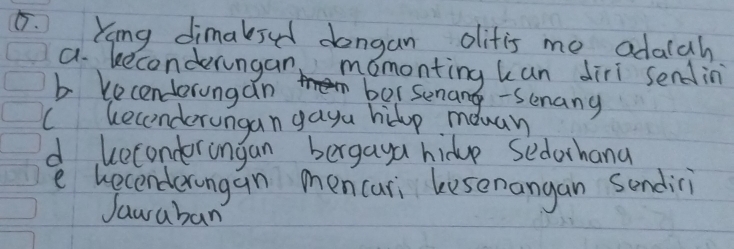 5. Yang dimaksud dengan olitis me adalah
a. kecenderungan mementing kan diri sendiri
b kecenderungan bersenang -senang
c kecenderungan gaya hidup mewah
d kecenderungan bergaya hidup sederhana
e kecenderungan mencari kesenangan sendiri
Jawaban